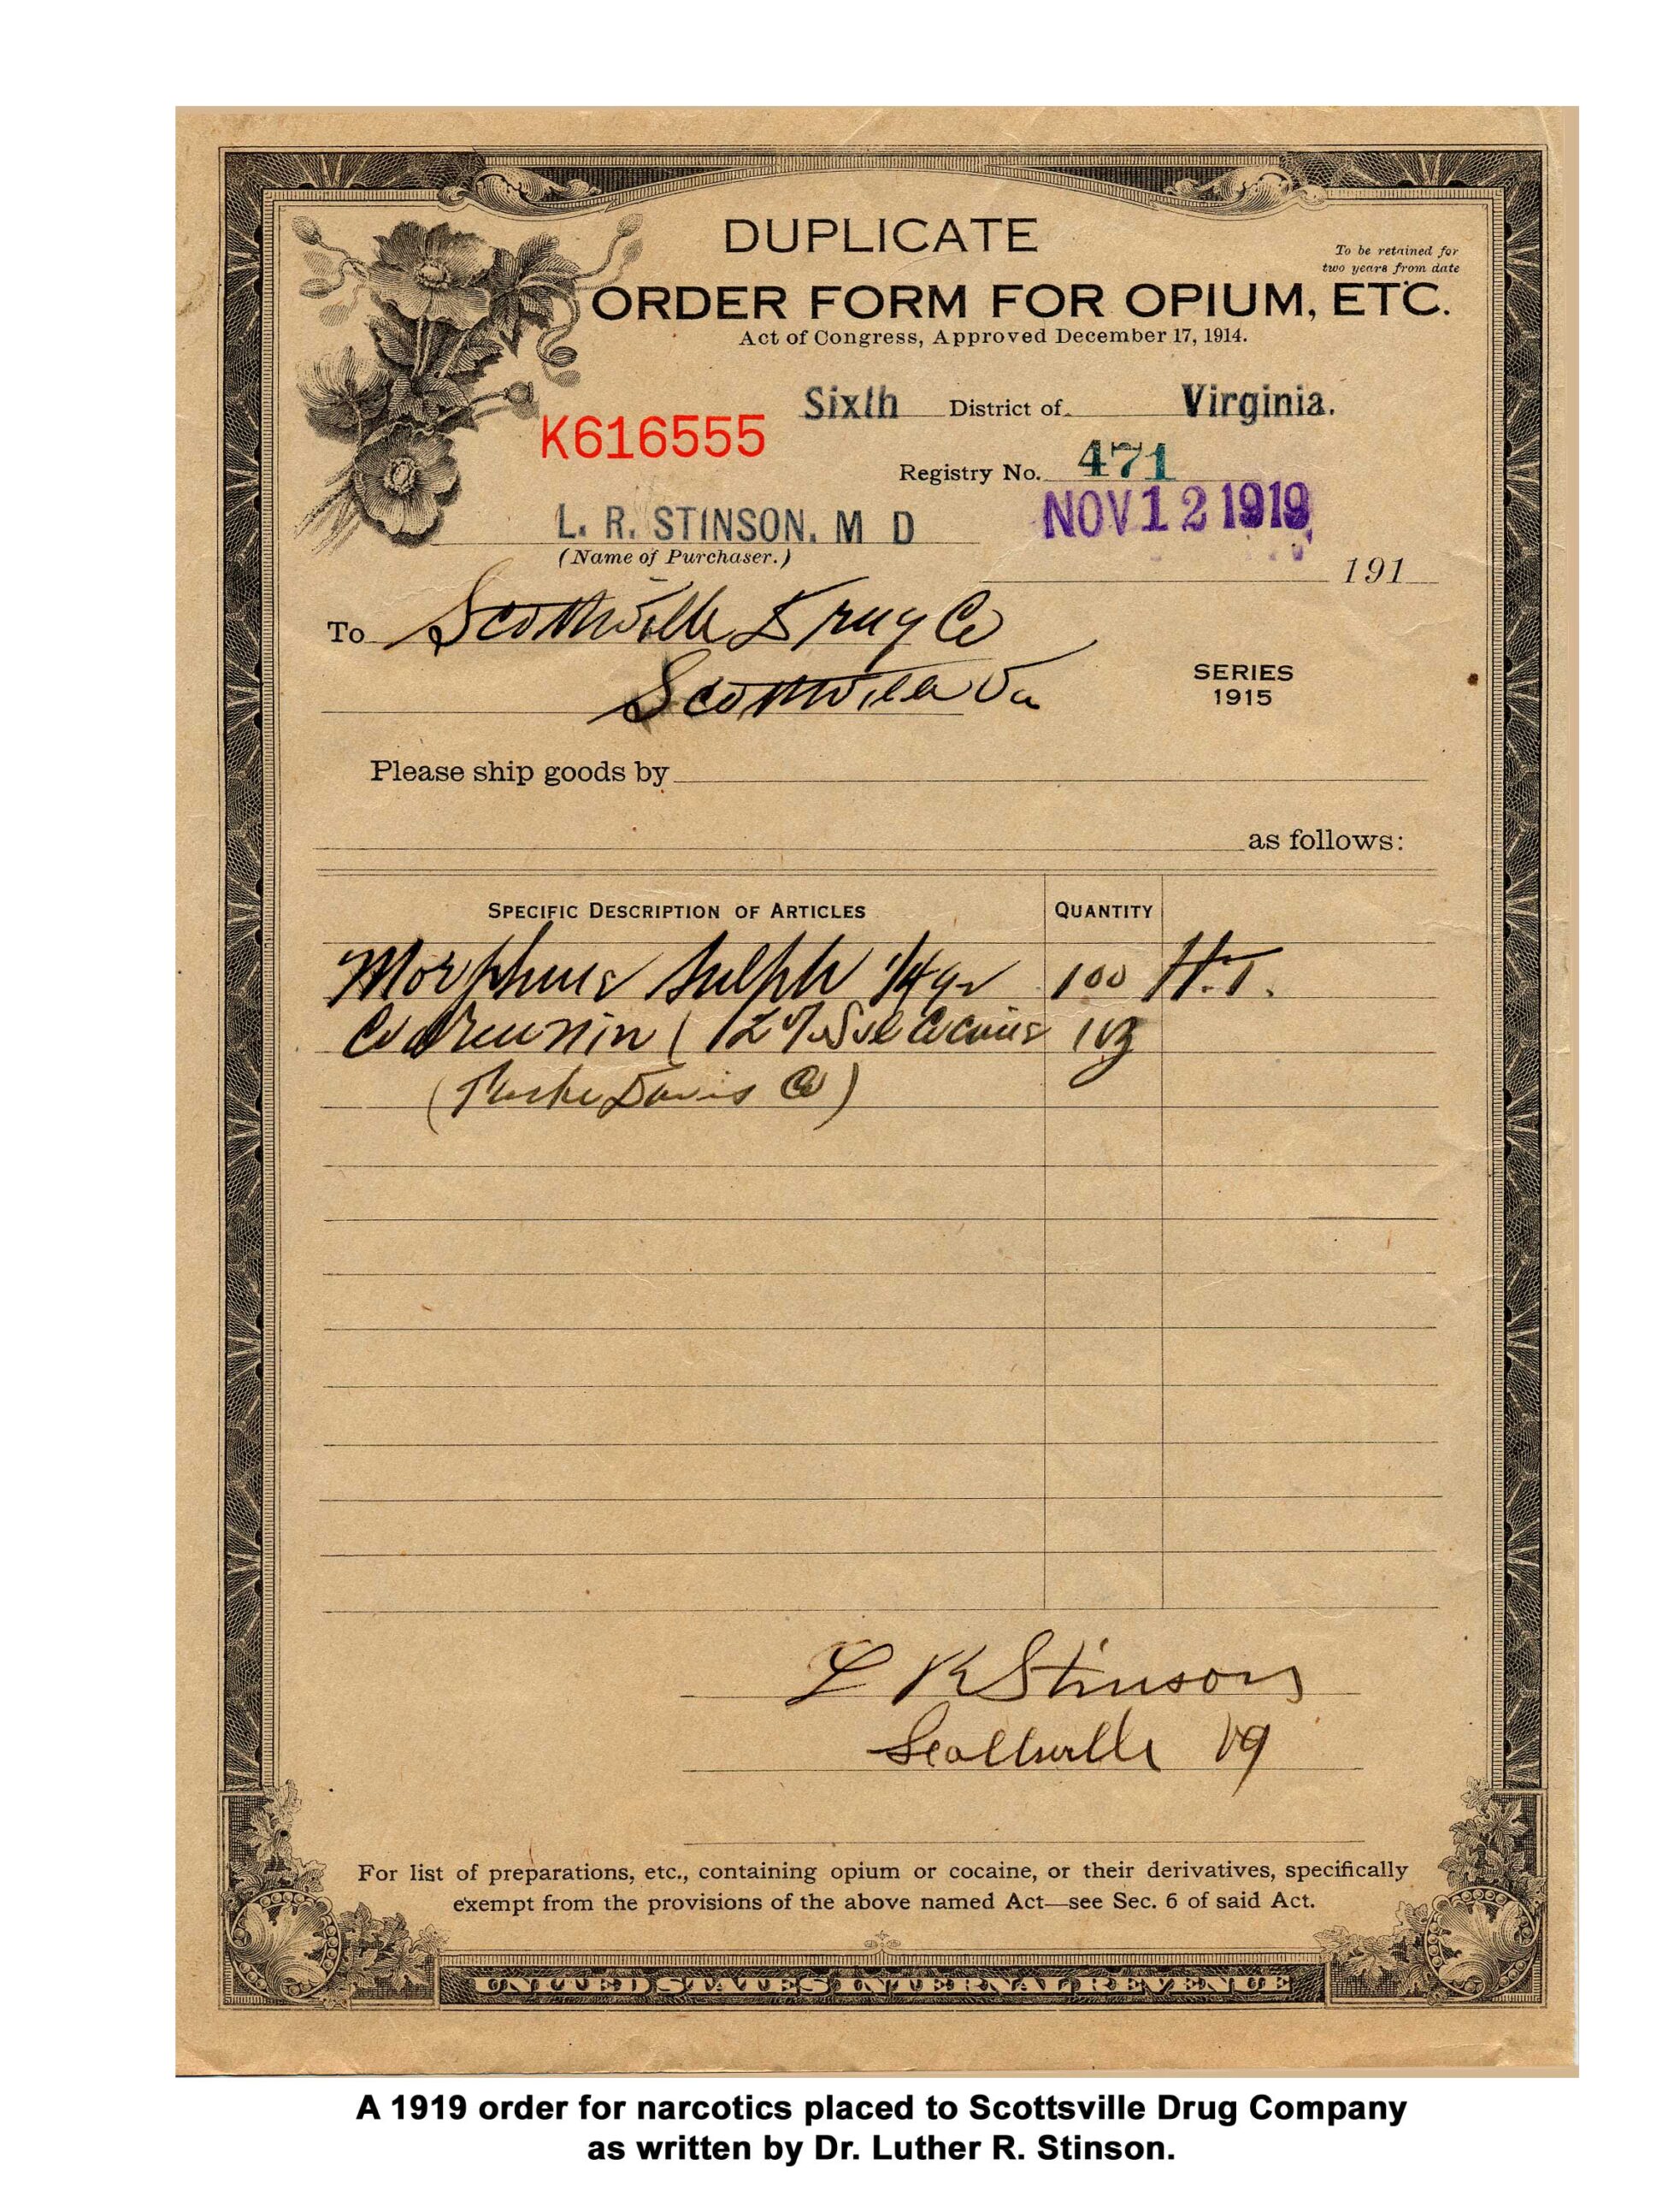 DUPLICATE
To be retained for
two years from date
ORDER FORM FOR OPIUM, ETC.
Act of Congress, Approved December 17, 1914.
Sixth District of Virginia.
K616555
Registry No. 471
L. R. STINSON. M D NOV 12 1919
(Name of Purchaser.)
191
To Scottsville Drug Co
Scottsville Va
SERIES
1915
Please ship goods by
as follows:
SPECIFIC DESCRIPTION OF ARTICLES QUANTITY
Morphine Sulph 1/4 gr 100 H.T.
Codrenin ( 2% Sol Cocaine 1 oz
(Parke Davis Co)
L R Stinson
Scottsville Va
For list of preparations, etc., containing opium or cocaine, or their derivatives, specifically
exempt from the provisions of the above named Act—see Sec. 6 of said Act.
UNITED STATES INTERNAL REVENUE
A 1919 order for narcotics placed to Scottsville Drug Company
as written by Dr. Luther R. Stinson.